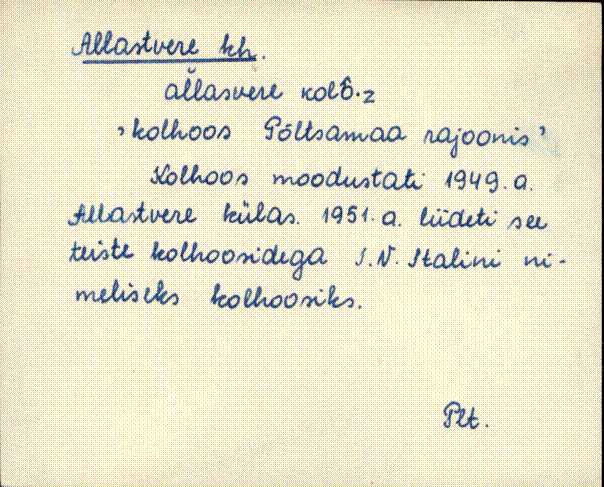 Allastvere kh.
ällasvere kol̆6·z
'kolhoos Põltsamaa rajoonis'
Kolhoos moodustati 1949.a.
Allastvere külas. 1951.a. liideti see
teiste kolhoosidega J.V. Stalini ni-
meliseks kolhoosiks.
Plt.